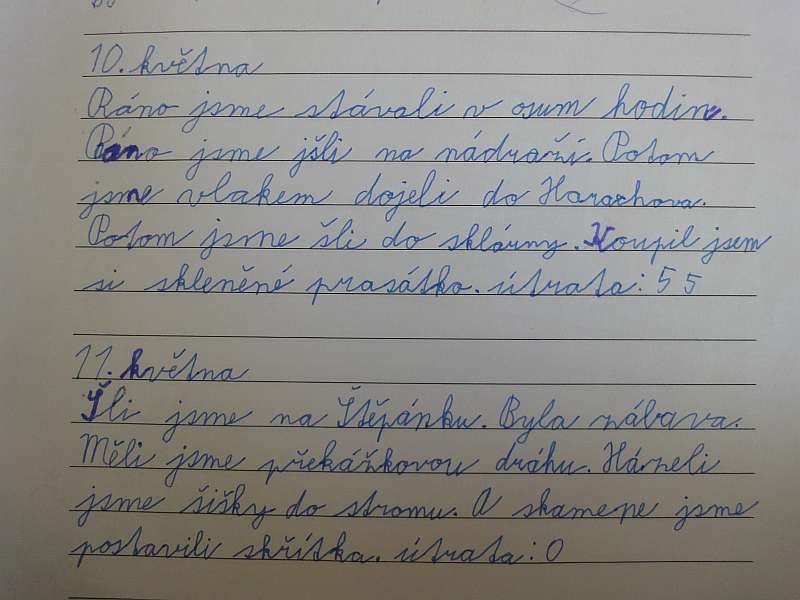 10. května
Ráno jsme stávali v osum hodin.
Ráno jsme jšli na nádraží. Potom
jsme vlakem dojeli do Harachova.
Potom jsme šli do sklárny. Koupil jsem
si skleněné prasátko. útrata: 55
11. května
Šli jsme na Štěpánku. Byla zábava.
Měli jsme překážkovou dráhu. Házeli
jsme šišky do stromu. A skamene jsme
postavili skřítka. útrata: 0